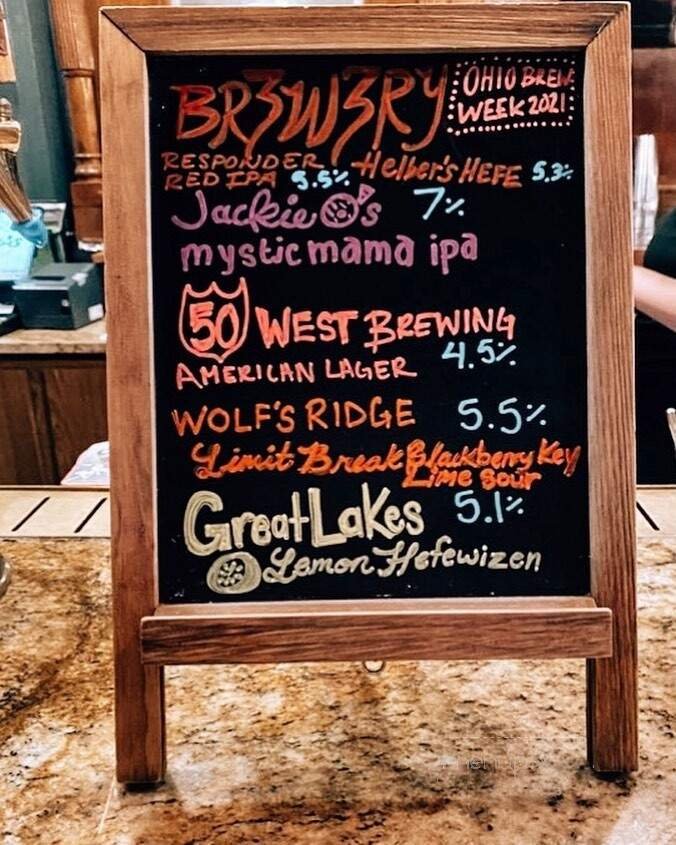 BR3W3RY
OHIO BREW
WEEK 2021
RESPONDER
RED IPA 5.5%
Helber's HEFE 5.3%
Jackie O's 7%
mystic mama ipa
50 WEST BREWING
AMERICAN LAGER 4.5%
WOLF'S RIDGE 5.5%
Limit Break Blackberry Key
Lime Sour
Great Lakes 5.1%
Lemon Hefewizen